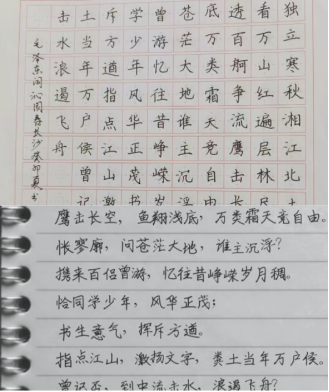 独立寒秋湘江北
看万山红遍层林
透百舸争流鹰击
底万类霜天竞自
苍茫大地谁主沉
曾游忆往昔峥嵘
学少年风华正茂
斥方遒指点江山
土当年万户侯曾
击水浪遏飞舟
毛泽东词沁园春长沙癸卯夏书
鹰击长空，鱼翔浅底，万类霜天竞自由。
怅寥廓，问苍茫大地，谁主沉浮？
携来百侣曾游，忆往昔峥嵘岁月稠。
恰同学少年，风华正茂；
书生意气，挥斥方遒。
指点江山，激扬文字，粪土当年万户侯。
曾记否，到中流击水，浪遏飞舟？